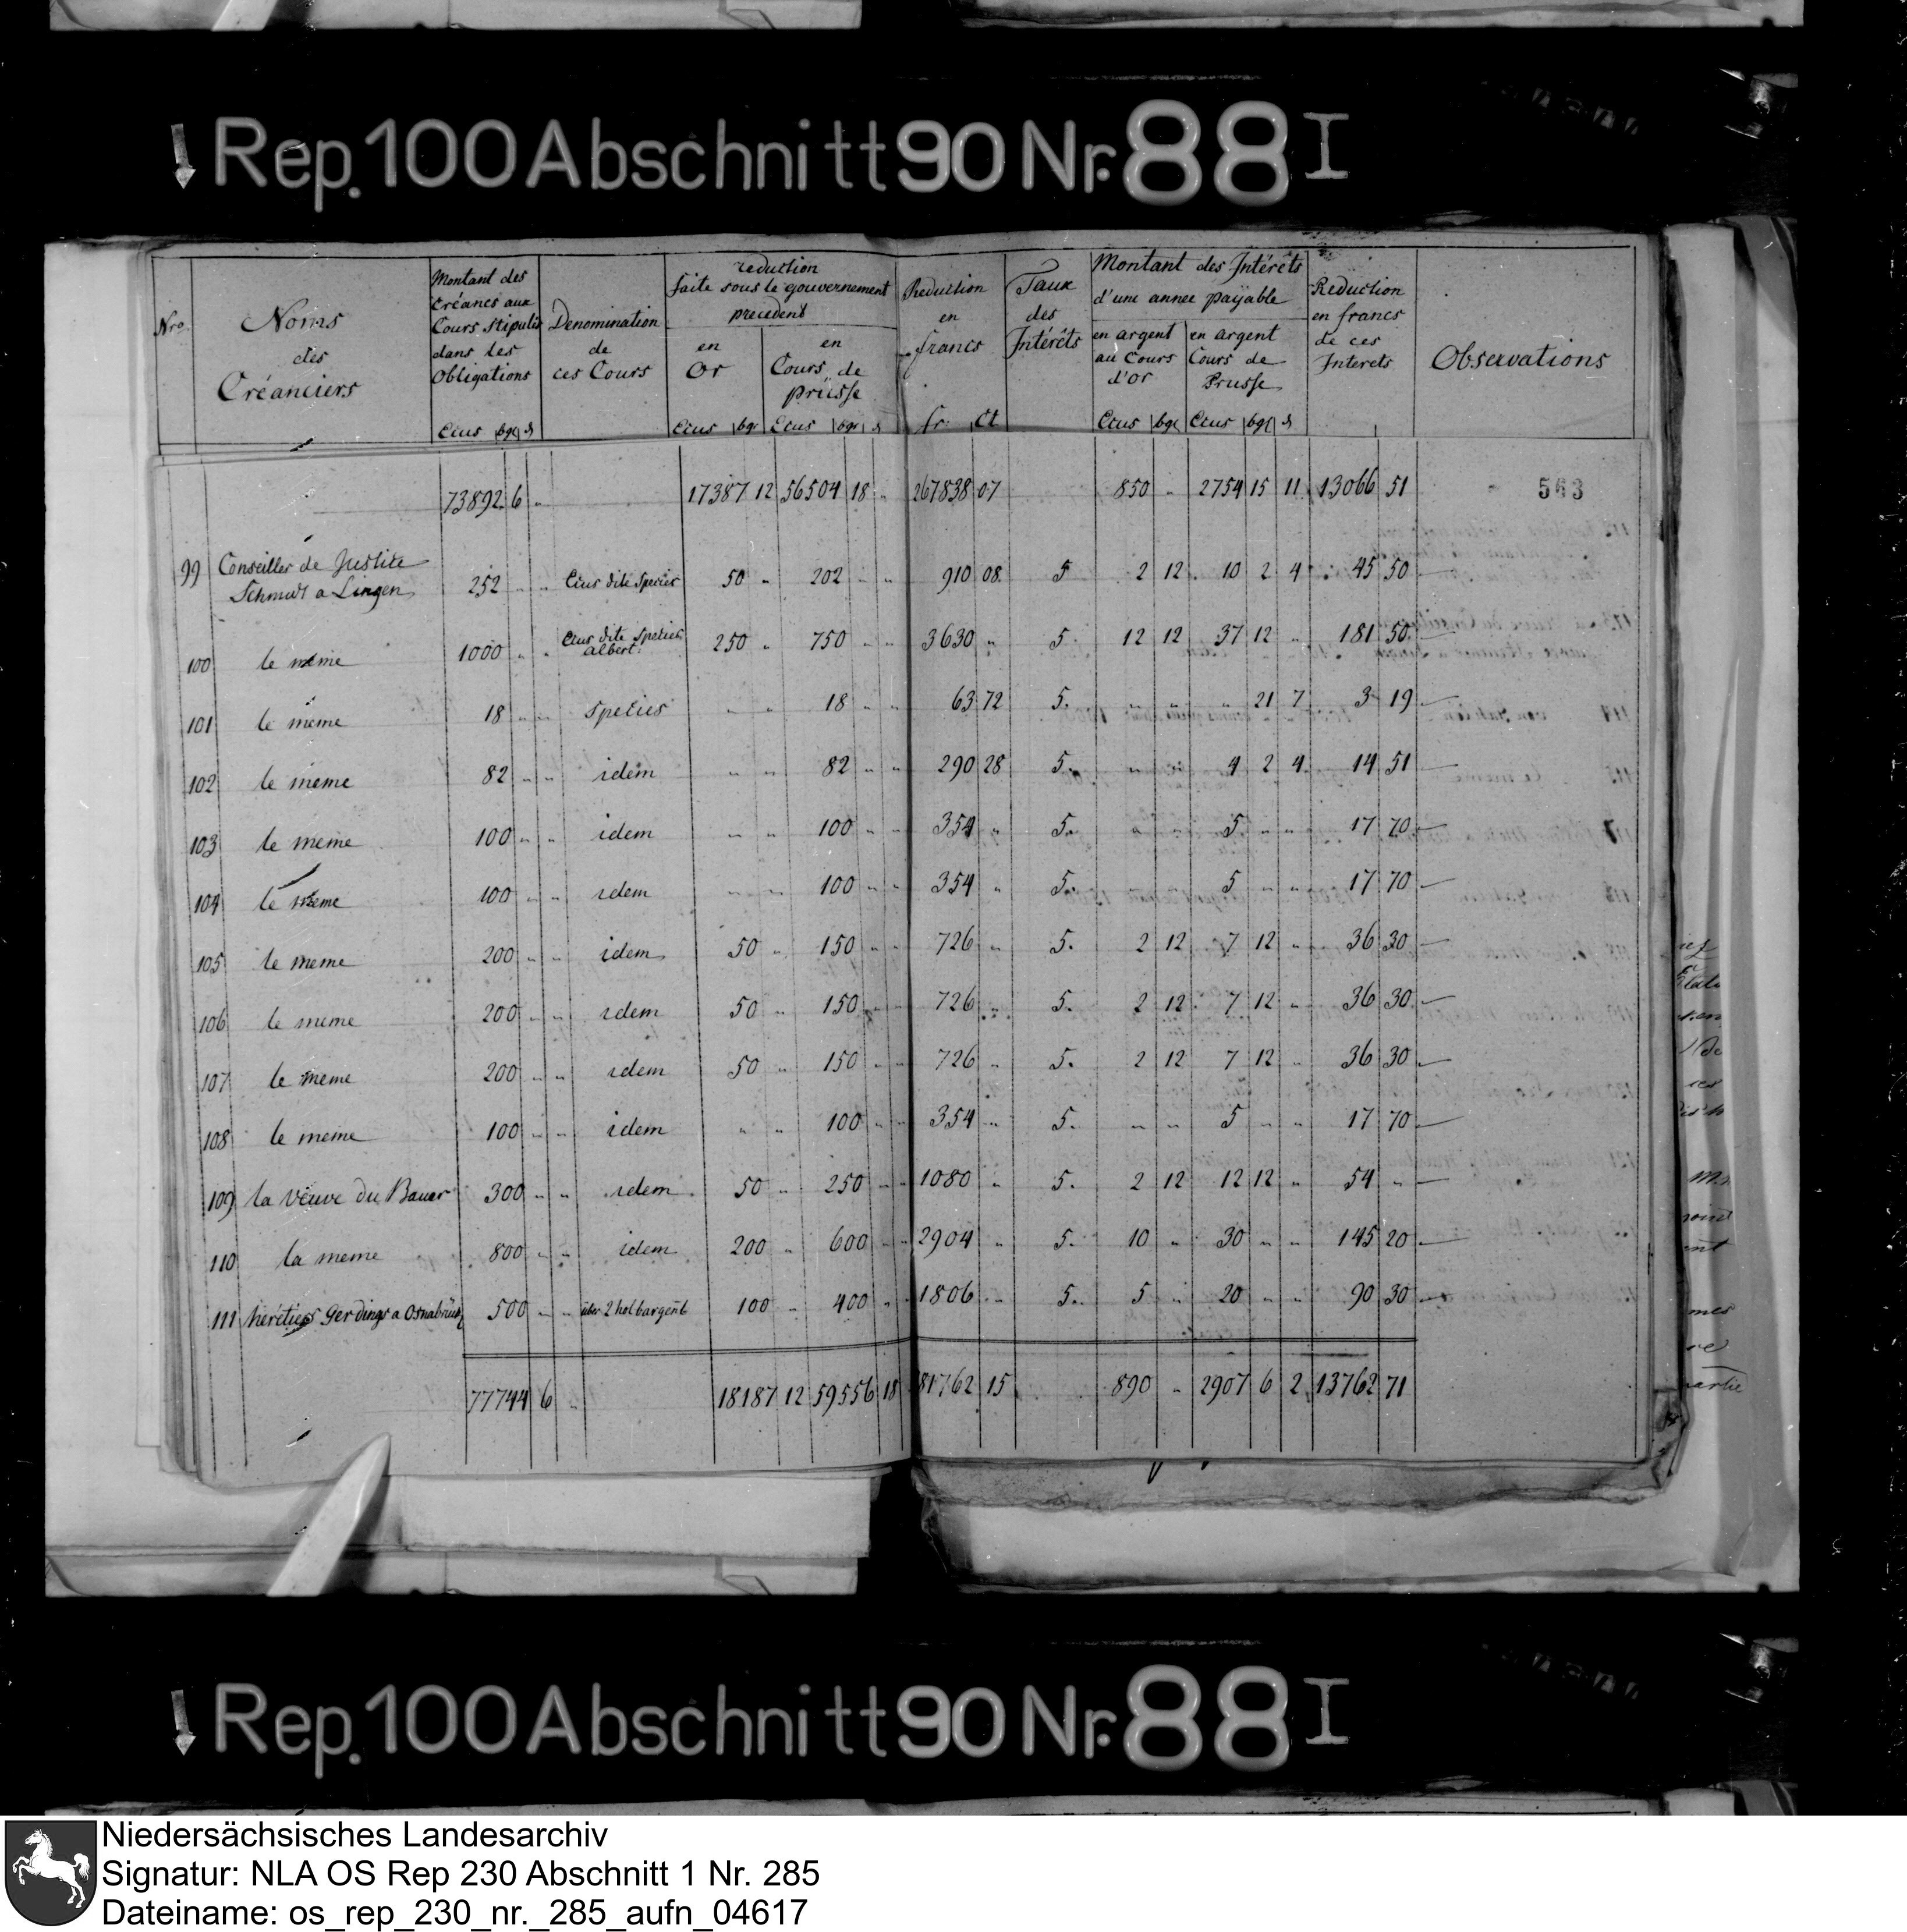 Rep. 100 Abschnitt 90 Nr. 88 I
Nro. Noms des Créanciers
Montant des Créances aux Cours stipulés dans les Obligations
Ecus bgs d
Denomination de ces Cours
reduction faite sous le gouvernement precedent
en Or
Ecus bgr
en Cours de prüsse
Ecus bgr d
Reduction en francs
fr. Ct
Taux des Intérêts
Montant des Intérêts d'une annee payable
en argent au Cours d'or
Ecus bgl
en argent Cours de Prusse
Ecus bgl d
Reduction en francs de ces Interets
Observations
73892 6 " 17387 12 56504 18 " 267838 07 850 " 2754 15 11 13066 51
563
99 Conseiller de Justice
Schmidt a Lingen 252 " " Ecus dite Species 50 " 202 " " 910 08 5 2 12 10 2 4 45 50
100 le meme 1000 " " Ecus dite Species albert. 250 " 750 " " 3630 " 5. 12 12 37 12 " 181 50
101 le meme 18 " " Species " " 18 " " 63 72 5. " " " 21 7 3 19
102 le meme 82 " " idem " " 82 " " 290 28 5. " " 4 2 4 14 51
103 le meme 100 " " idem " " 100 " " 354 " 5. " " 5 " " 17 70
104 le meme 100 " " idem " " 100 " " 354 " 5. " " 5 " " 17 70
105 le meme 200 " " idem 50 " 150 " " 726 " 5. 2 12 7 12 " 36 30
106 le meme 200 " " idem 50 " 150 " " 726 " 5. 2 12 7 12 " 36 30
107 le meme 200 " " idem 50 " 150 " " 726 " 5. 2 12 7 12 " 36 30
108 le meme 100 " " idem " " 100 " " 354 " 5. " " 5 " " 17 70
109 la veuve du Bauer 300 " " idem 50 " 250 " " 1080 " 5. 2 12 12 12 " 54 "
110 la meme 800 " " idem 200 " 600 " " 2904 " 5. 10 " 30 " " 145 20
111 héritiers Gerdings a Osnabrück 500 " " 100 " 400 " " 1806 " 5. 5 " 20 " " 90 30
77744 6 " 18187 12 59556 18 81762 15 890 " 2907 6 2 13762 71
Rep. 100 Abschnitt 90 Nr. 88 I
Niedersächsisches Landesarchiv
Signatur: NLA OS Rep 230 Abschnitt 1 Nr. 285
Dateiname: os_rep_230_nr._285_aufn_04617